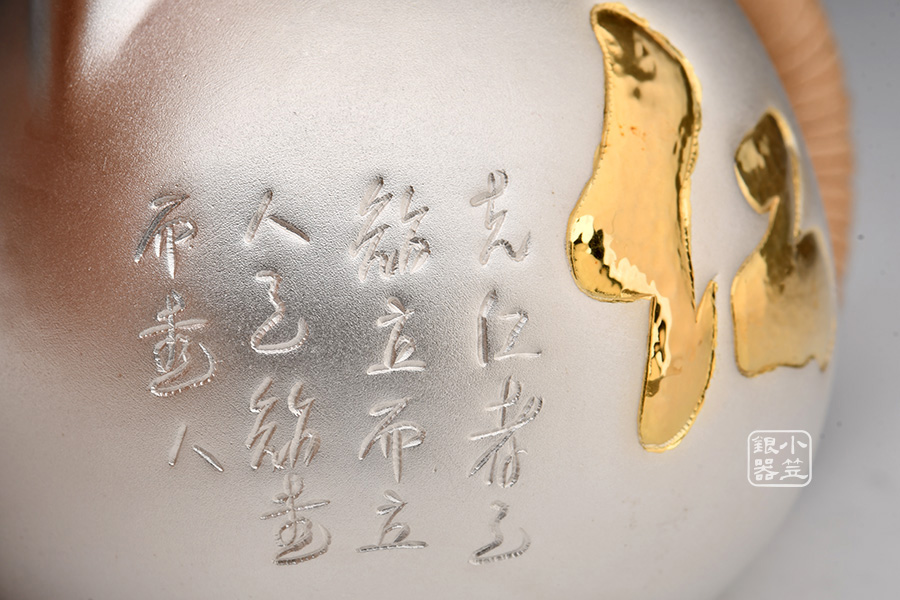 仁
先仁者己
能立而立
人己能達
而達人
小笠
銀器